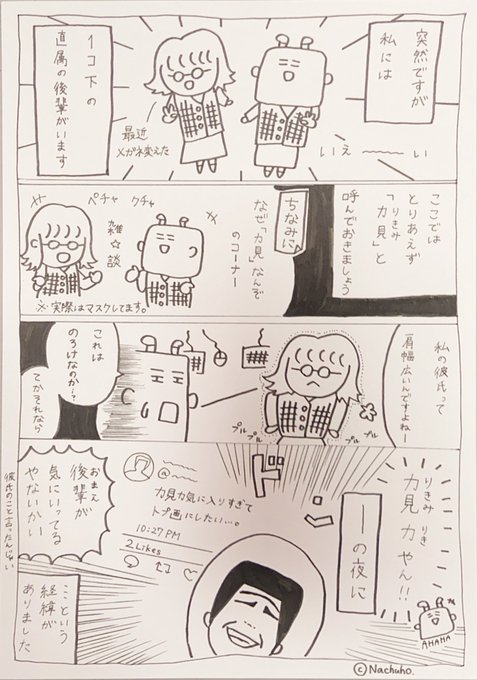 突然ですが
私には
1コ下の
直属の後輩がいます
最近
メガネ変えた
いえ〜〜い
ここでは
とりあえず
「力見」と
りきみ
呼んでおきましょう
ちなみに
なぜ「力見」なんぞ
のコーナー
ペチャクチャ
雑☆談
※実際はマスクしてます。
私の彼氏って
肩幅広いんですよねー
プルプル
プルプル
これは
のろけなのか…?
てかそれなら
りきみ りき
力見 力やん!!
AHAHA
ーの夜に
ドーン
@
力見力気に入りすぎて
トプ画にしたい…。
10:27 PM
2 Likes
おまえ
後輩が
気にいってる
やないかい
彼氏のこと言ったんじゃい
という
経緯が
ありました
©Nachuho.